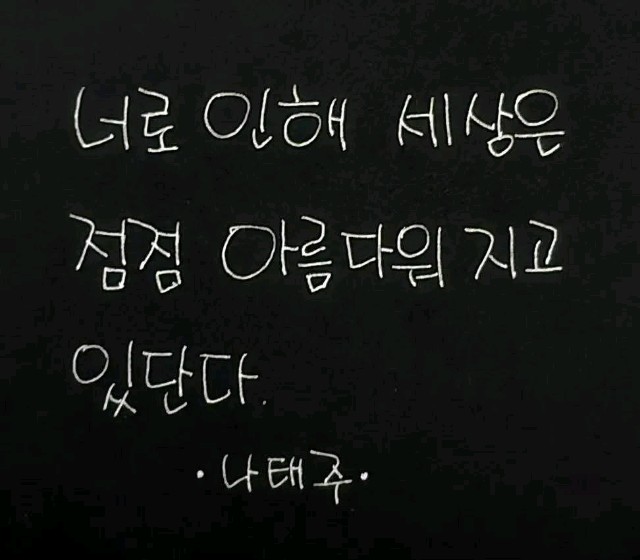 너로 인해 세상은
점점 아름다워 지고
있단다.
·나태주·